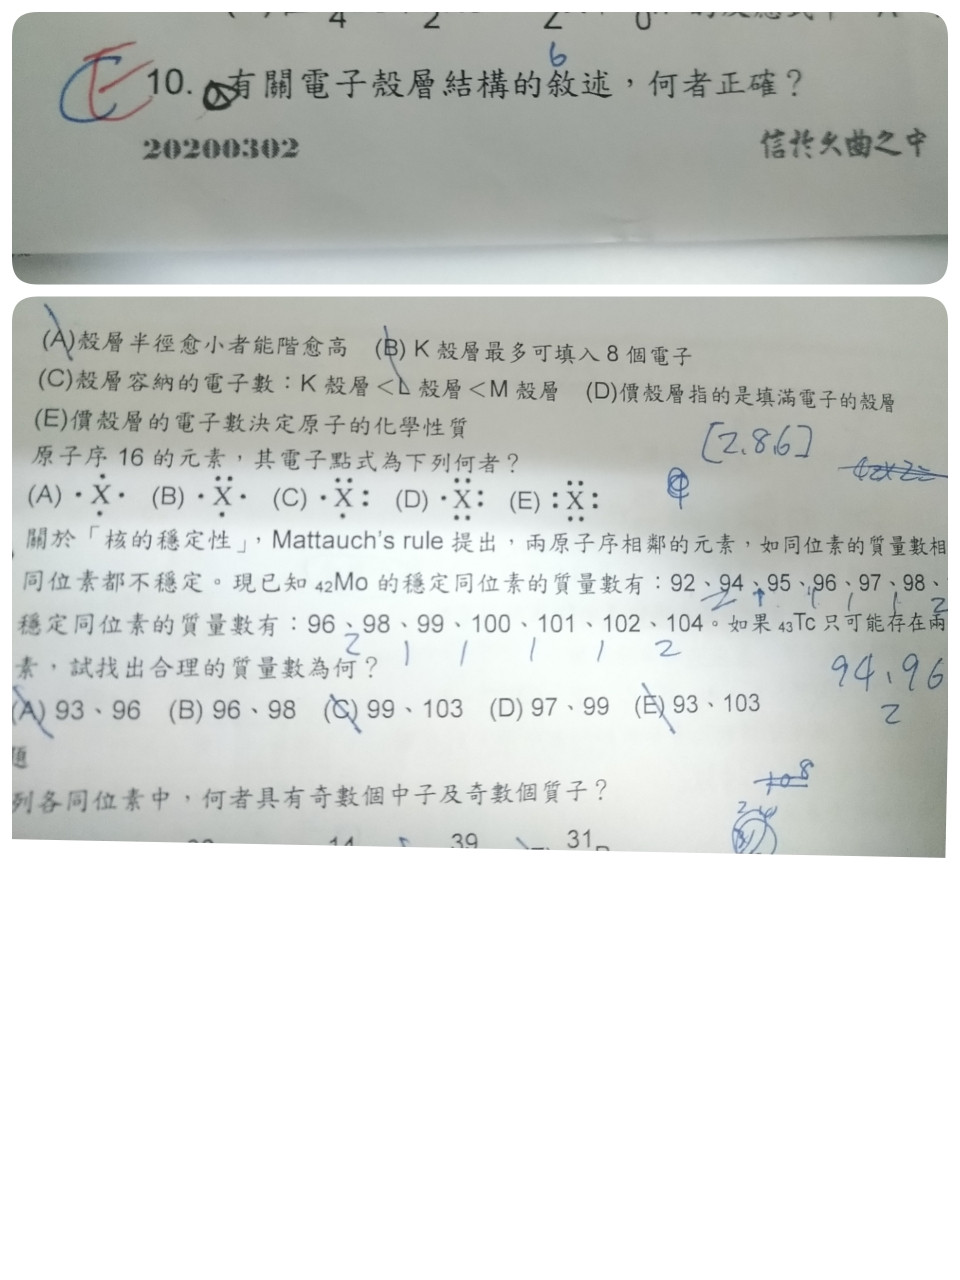 10. 有關電子殼層結構的敘述，何者正確？
6
20200302
信於久曲之中
(A)殼層半徑愈小者能階愈高 (B) K 殼層最多可填入 8 個電子
(C)殼層容納的電子數：K 殼層＜L 殼層＜M 殼層 (D)價殼層指的是填滿電子的殼層
(E)價殼層的電子數決定原子的化學性質
[2.8.6]
原子序 16 的元素，其電子點式為下列何者？
(A) ·X· (B) ·X· (C) ·X: (D) ·X: (E) :X:
關於「核的穩定性」，Mattauch's rule 提出，兩原子序相鄰的元素，如同位素的質量數相
同位素都不穩定。現已知 ₄₂Mo 的穩定同位素的質量數有：92、94、95、96、97、98、
2 1 1 1 2
穩定同位素的質量數有：96、98、99、100、101、102、104。如果 ₄₃Tc 只可能存在兩
2 1 1 1 1 2
素，試找出合理的質量數為何？
94、96
2
(A) 93、96 (B) 96、98 (C) 99、103 (D) 97、99 (E) 93、103
題
列各同位素中，何者具有奇數個中子及奇數個質子？
39 31